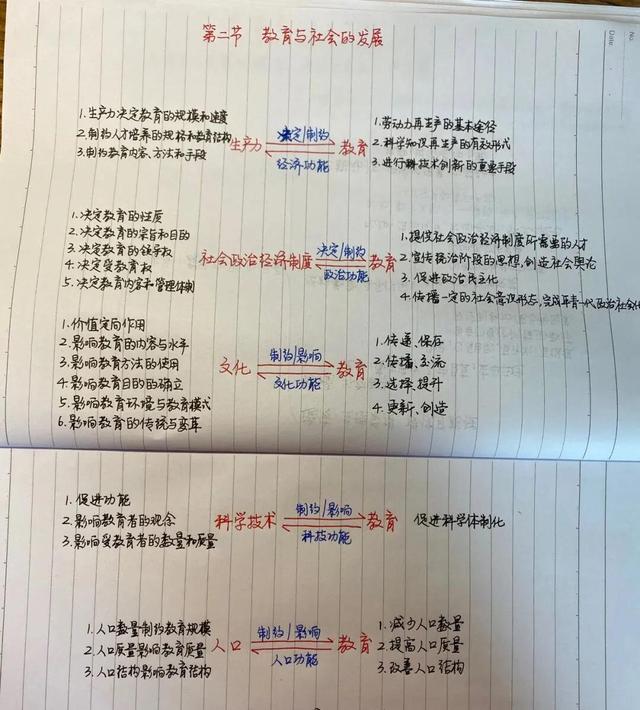 No.
Date
第二节 教育与社会的发展
1.生产力决定教育的规模和速度
2.制约人才培养的规格和教育结构
3.制约教育内容、方法和手段
生产力 决定/制约 教育
经济功能
1.劳动力再生产的基本途径
2.科学知识再生产的有效形式
3.进行科技术创新的重要手段
1.决定教育的性质
2.决定教育的宗旨和目的
3.决定教育的领导权
4.决定受教育权
5.决定教育内容和管理体制
社会政治经济制度 决定/制约 教育
政治功能
1.提供社会政治经济制度所需要的人才
2.宣传统治阶段的思想,创造社会舆论
3.促进政治民主化
4.传播一定的社会意识形态,完成年青一代政治社会化
1.价值定向作用
2.影响教育的内容与水平
3.影响教育方法的使用
4.影响教育目的的确立
5.影响教育环境与教育模式
6.影响教育的传统与变革
文化 制约/影响 教育
文化功能
1.传递、保存
2.传播、交流
3.选择、提升
4.更新、创造
1.促进功能
2.影响教育者的观念
3.影响受教育者的数量和质量
科学技术 制约/影响 教育
科技功能
促进科学体制化
1.人口数量制约教育规模
2.人口质量影响教育质量
3.人口结构影响教育结构
人口 制约/影响 教育
人口功能
1.减少人口数量
2.提高人口质量
3.改善人口结构